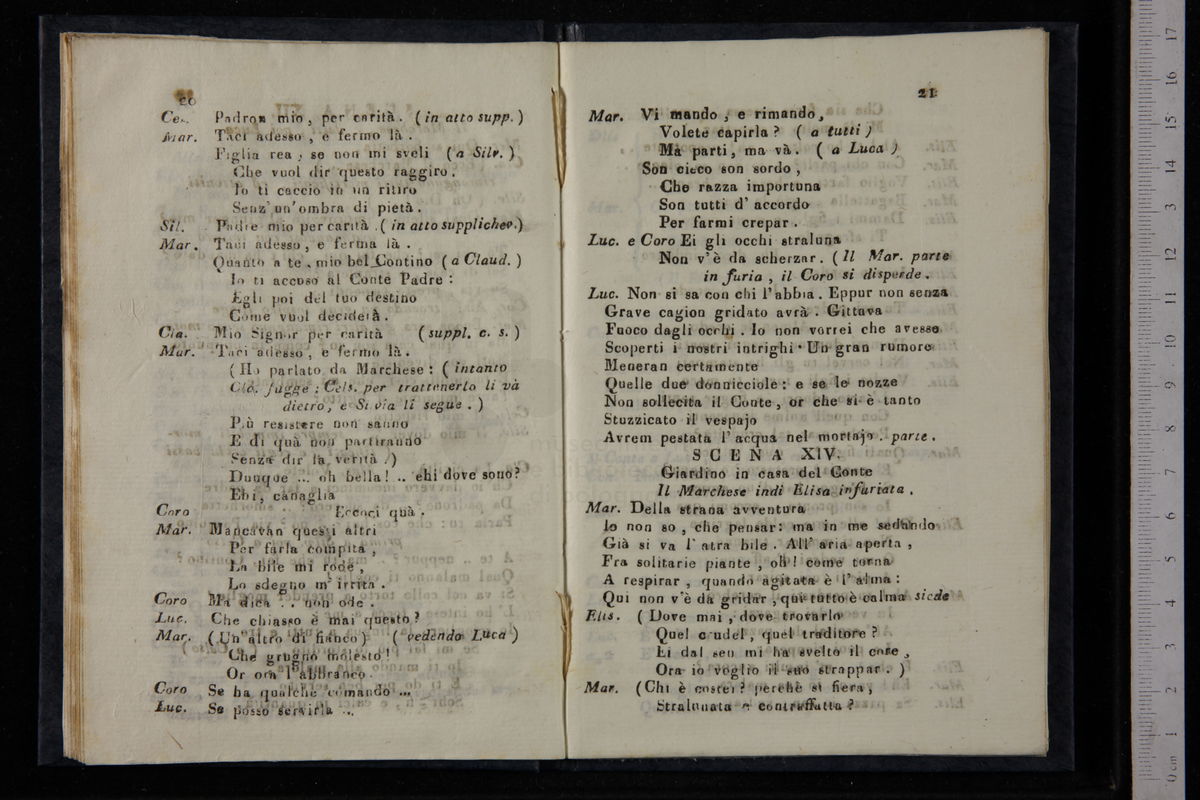 20
Cel. Padron mio, per carità. (in atto supp.)
Mar. Taci adesso, e fermo là.
Figlia rea, se non mi sveli (a Silv.)
Che vuol dir questo raggiro.
Io ti caccio in un ritiro
Senz' un'ombra di pietà.
Sil. Padre mio per carità. (in atto supplichev.)
Mar. Taci adesso, e ferma là.
Quanto a te, mio bel Contino (a Claud.)
Io ti accuso al Conte Padre:
Egli poi del tuo destino
Come vuol deciderà.
Cla. Mio Signor per carità (suppl. c. s.)
Mar. Taci adesso, e fermo là.
(Ho parlato da Marchese: (intanto
Cla. fugge; Cels. per trattenerlo li và
dietro, e Silvia li segue.)
Più resistere non sanno
E di quà non partiranno
Senza dir la verità.)
Dunque ... oh bella! .. ehi dove sono?
Ehi, canaglia
Coro Eccoci quà.
Mar. Mancavan questi altri
Per farla compita,
La bile mi rode,
Lo sdegno m'irrita.
Coro Ma dica .. non ode.
Luc. Che chiasso è mai questo?
Mar. (Un altro di fianco) (vedendo Luca)
Che grugno molesto!
Or ora l'abbranco.
Coro Se ha qualche comando ...
Luc. Se posso servirla ...
21
Mar. Vi mando, e rimando,
Volete capirla? (a tutti)
Ma parti, ma và. (a Luca)
Son cieco son sordo,
Che razza importuna
Son tutti d'accordo
Per farmi crepar.
Luc. e Coro Ei gli occhi straluna
Non v'è da scherzar. (Il Mar. parte
in furia, il Coro si disperde.
Luc. Non si sa con chi l'abbia. Eppur non senza
Grave cagion gridato avrà. Gittava
Fuoco dagli occhi. Io non vorrei che avesse
Scoperti i nostri intrighi. Un gran rumore
Meneran certamente
Quelle due donnicciole: e se le nozze
Non sollecita il Conte, or che si è tanto
Stuzzicato il vespajo
Avrem pestata l'acqua nel mortajo. parte.
SCENA XIV.
Giardino in casa del Conte
Il Marchese indi Elisa infuriata.
Mar. Della strana avventura
Io non so, che pensar: ma in me sedando
Già si va l'atra bile. All' aria aperta,
Fra solitarie piante, oh! come torna
A respirar, quando agitata è l'alma:
Qui non v'è da gridar, qui tutto è calma siede
Elis. (Dove mai, dove trovarlo
Quel crudel, quel traditore?
Ei dal sen mi ha svelto il core,
Ora io voglio il suo strappar.)
Mar. (Chi è costei? perchè sì fiera,
Stralunata e contraffatta?